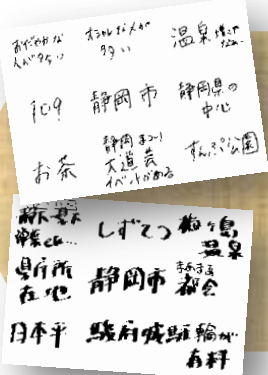 おだやかな
人が多い
オシャレな人が
多い
温泉
109
静岡市
静岡県の
中心
お茶
静岡まつり
大道芸
イベントがある
すんぷ公園
しずてつ
梅ヶ島
温泉
県庁所
在地
静岡市
まあまあ
都会
日本平
駿府城
駐輪が
有料